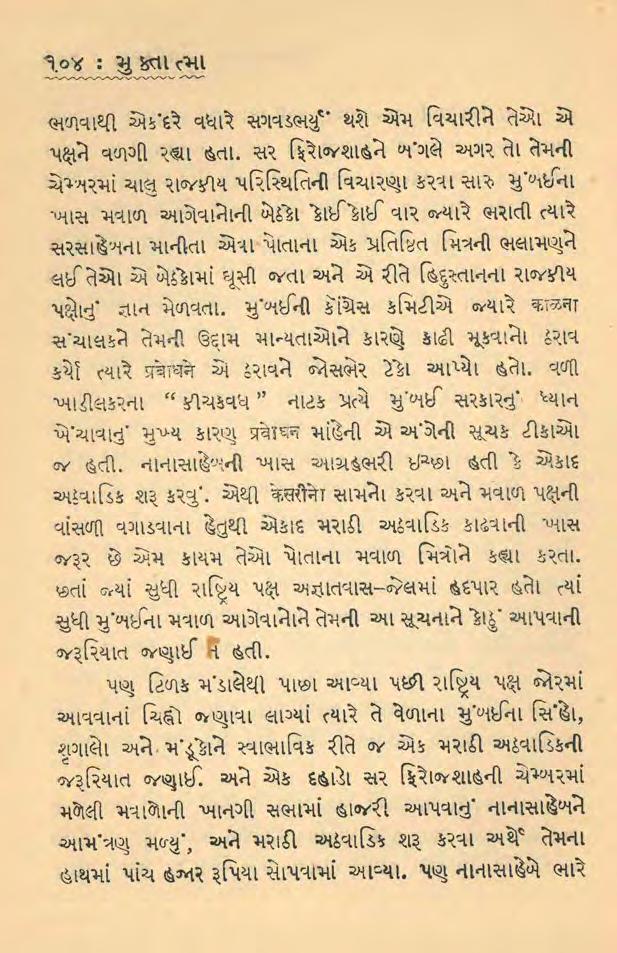 ૧૦૪ : મુક્તાત્મા
ભળવાથી એકંદરે વધારે સગવડભર્યું થશે એમ વિચારીને તેઓ એ
પક્ષને વળગી રહ્યા હતા. સર ફિરોજશાહને બંગલે અગર તો તેમની
ચેમ્બરમાં ચાલુ રાજકીય પરિસ્થિતિની વિચારણા કરવા સારુ મુંબઈના
ખાસ મવાળ આગેવાનોની બેઠકો કોઈ કોઈ વાર જ્યારે ભરાતી ત્યારે
સરસાહેબના માનીતા એવા પોતાના એક પ્રતિષ્ઠિત મિત્રની ભલામણને
લઈ તેઓ એ બેઠકોમાં ઘૂસી જતા અને એ રીતે હિંદુસ્તાનના રાજકીય
પક્ષોનું જ્ઞાન મેળવતા. મુંબઈની કૉંગ્રેસ કમિટીએ જ્યારે काळના
સંચાલકને તેમની ઉદ્દામ માન્યતાઓને કારણે કાઢી મૂકવાનો ઠરાવ
કર્યો ત્યારે प्रबोधને એ ઠરાવને જોસભેર ટેકો આપ્યો હતો. વળી
ખાડીલકરના “ કીચકવધ ” નાટક પ્રત્યે મુંબઈ સરકારનું ધ્યાન
ખેંચાવાનું મુખ્ય કારણ प्रबोधન માંહેની એ અંગેની સૂચક ટીકાઓ
જ હતી. નાનાસાહેબની ખાસ આગ્રહભરી ઇચ્છા હતી કે એકાદ
અઠવાડિક શરૂ કરવું. એથી केसरीનો સામનો કરવા અને મવાળ પક્ષની
વાંસળી વગાડવાના હેતુથી એકાદ મરાઠી અઠવાડિક કાઢવાની ખાસ
જરૂર છે એમ કાયમ તેઓ પોતાના મવાળ મિત્રોને કહ્યા કરતા.
છતાં જ્યાં સુધી રાષ્ટ્રિય પક્ષ અજ્ઞાતવાસ–જેલમાં હદપાર હતો ત્યાં
સુધી મુંબઈના મવાળ આગેવાનોને તેમની આ સૂચનાને કોઠું આપવાની
જરૂરિયાત જણાઈ ન હતી.
પણ ટિળક મંડાલેથી પાછા આવ્યા પછી રાષ્ટ્રિય પક્ષ જોરમાં
આવવાનાં ચિહ્નો જણાવા લાગ્યાં ત્યારે તે વેળાના મુંબઈના સિંહો,
શૃગાલો અને મંડૂકોને સ્વાભાવિક રીતે જ એક મરાઠી અઠવાડિકની
જરૂરિયાત જણાઈ. અને એક દહાડો સર ફિરોજશાહની ચેમ્બરમાં
મળેલી મવાળોની ખાનગી સભામાં હાજરી આપવાનું નાનાસાહેબને
આમંત્રણ મળ્યું, અને મરાઠી અઠવાડિક શરૂ કરવા અર્થે તેમના
હાથમાં પાંચ હજાર રૂપિયા સોપવામાં આવ્યા. પણ નાનાસાહેબે ભારે